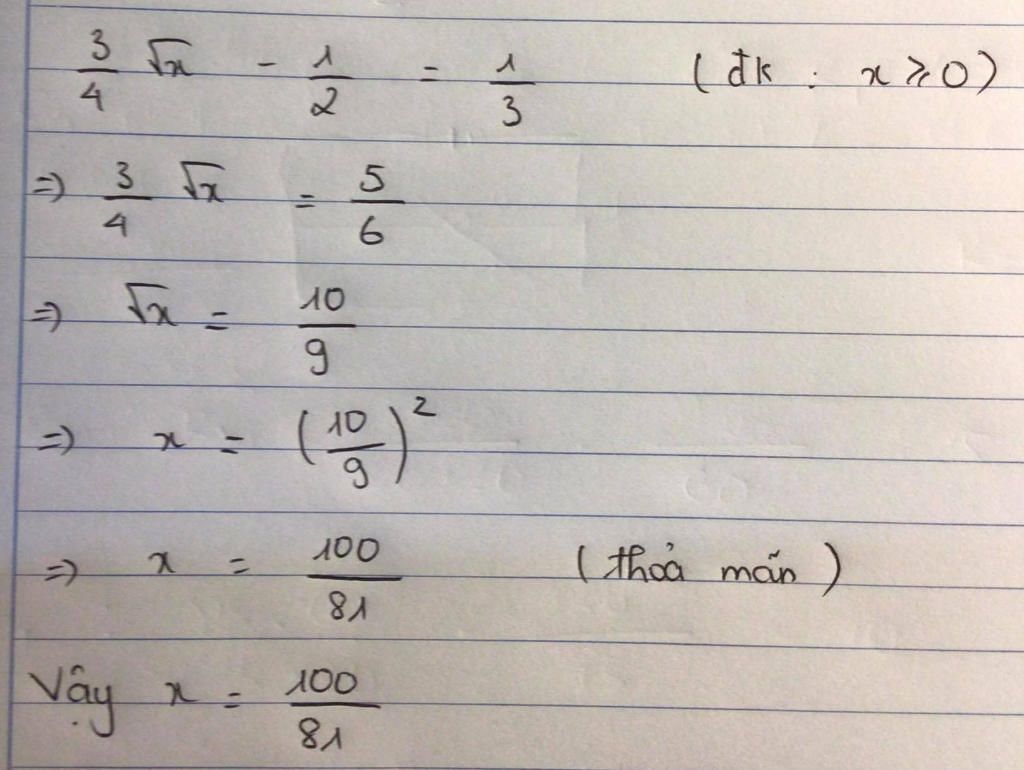 3/4 √x - 1/2 = 1/3 (đk : x ⩾ 0)
⇒ 3/4 √x = 5/6
⇒ √x = 10/9
⇒ x = (10/9)²
⇒ x = 100/81 (thoả mãn)
Vậy x = 100/81